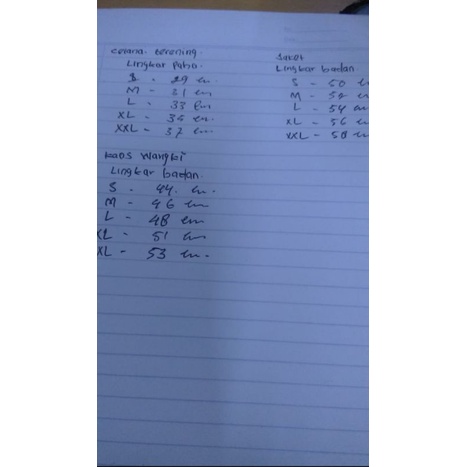 celana trening.
Lingkar Paha.
S - 29 cm
M - 31 cm
L - 33 cm
XL - 35 cm
XXL - 37 cm
Jaket
Lingkar badan
S - 50 cm
M - 52 cm
L - 54 cm
XL - 56 cm
XXL - 58 cm
kaos wangki
Lingkar badan.
S - 44. cm.
M - 46 cm
L - 48 cm
XL - 51 cm
XL - 53 cm.